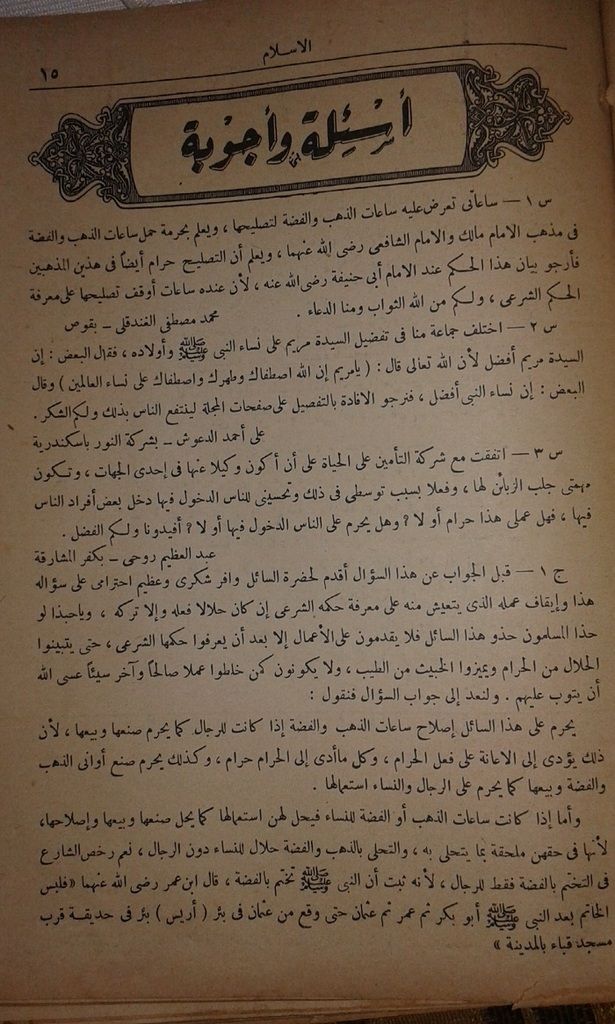 الاسلام
١٥
أسئلة وأجوبة
س ١ — ساعاتى تعرض عليه ساعات الذهب والفضة لتصليحها ، ويعلم بحرمة حمل ساعات الذهب والفضة
فى مذهب الامام مالك والامام الشافعى رضى الله عنهما ، ويعلم أن التصليح حرام أيضاً فى هذين المذهبين
فأرجو بيان هذا الحكم عند الامام أبى حنيفة رضى الله عنه ، لأن عنده ساعات أوقف تصليحها على معرفة
الحكم الشرعى ، ولكم من الله الثواب ومنا الدعاء .
محمد مصطفى الغندقلى ــ بقوص
س ٢ — اختلف جماعة منا فى تفضيل السيدة مريم على نساء النبى ﷺ وأولاده ، فقال البعض : إن
السيدة مريم أفضل لأن الله تعالى قال : ( يامريم إن الله اصطفاك وطهرك واصطفاك على نساء العالمين ) وقال
البعض : إن نساء النبى أفضل ، فنرجو الافادة بالتفصيل على صفحات المجلة لينتفع الناس بذلك ولكم الشكر .
على أحمد الدعوش ــ بشركة النور باسكندرية
س ٣ — اتفقت مع شركة التأمين على الحياة على أن أكون وكيلا عنها فى إحدى الجهات ، وتكون
مهمتى جلب الزبائن لها ، وفعلا بسبب توسطى فى ذلك وتحسينى للناس الدخول فيها دخل بعض أفراد الناس
فيها ، فهل عملى هذا حرام أو لا ؟ وهل يحرم على الناس الدخول فيها أو لا ؟ أفيدونا ولكم الفضل .
عبد العظيم روحى ــ بكفر المشارقة
ج ١ — قبل الجواب عن هذا السؤال أقدم لحضرة السائل وافر شكرى وعظيم احترامى على سؤاله
هذا وإيقاف عمله الذى يتعيش منه على معرفة حكمه الشرعى إن كان حلالا فعله وإلا تركه ، وياحبذا لو
حذا المسلمون حذو هذا السائل فلا يقدمون على الأعمال إلا بعد أن يعرفوا حكمها الشرعى ، حتى يتبينوا
الحلال من الحرام ويميزوا الخبيث من الطيب ، ولا يكونون كمن خلطوا عملا صالحاً وآخر سيئاً عسى الله
أن يتوب عليهم . ولنعد إلى جواب السؤال فنقول :
يحرم على هذا السائل إصلاح ساعات الذهب والفضة إذا كانت للرجال كما يحرم صنعها وبيعها ، لأن
ذلك يؤدى إلى الاعانة على فعل الحرام ، وكل ماأدى إلى الحرام حرام ، وكذلك يحرم صنع أوانى الذهب
والفضة وبيعها كما يحرم على الرجال والنساء استعمالها .
وأما إذا كانت ساعات الذهب أو الفضة للنساء فيحل لهن استعمالها كما يحل صنعها وبيعها وإصلاحها،
لأنها فى حقهن ملحقة بما يتحلى به ، والتحلى بالذهب والفضة حلال للنساء دون الرجال ، نعم رخص الشارع
فى التختم بالفضة فقط للرجال ، لأنه ثبت أن النبى ﷺ تختم بالفضة ، قال ابن عمر رضى الله عنهما «فلبس
الخاتم بعد النبى ﷺ أبو بكر ثم عمر ثم عثمان حتى وقع من عثمان فى بئر ( أريس ) بئر فى حديقة قرب
مسجد قباء بالمدينة »